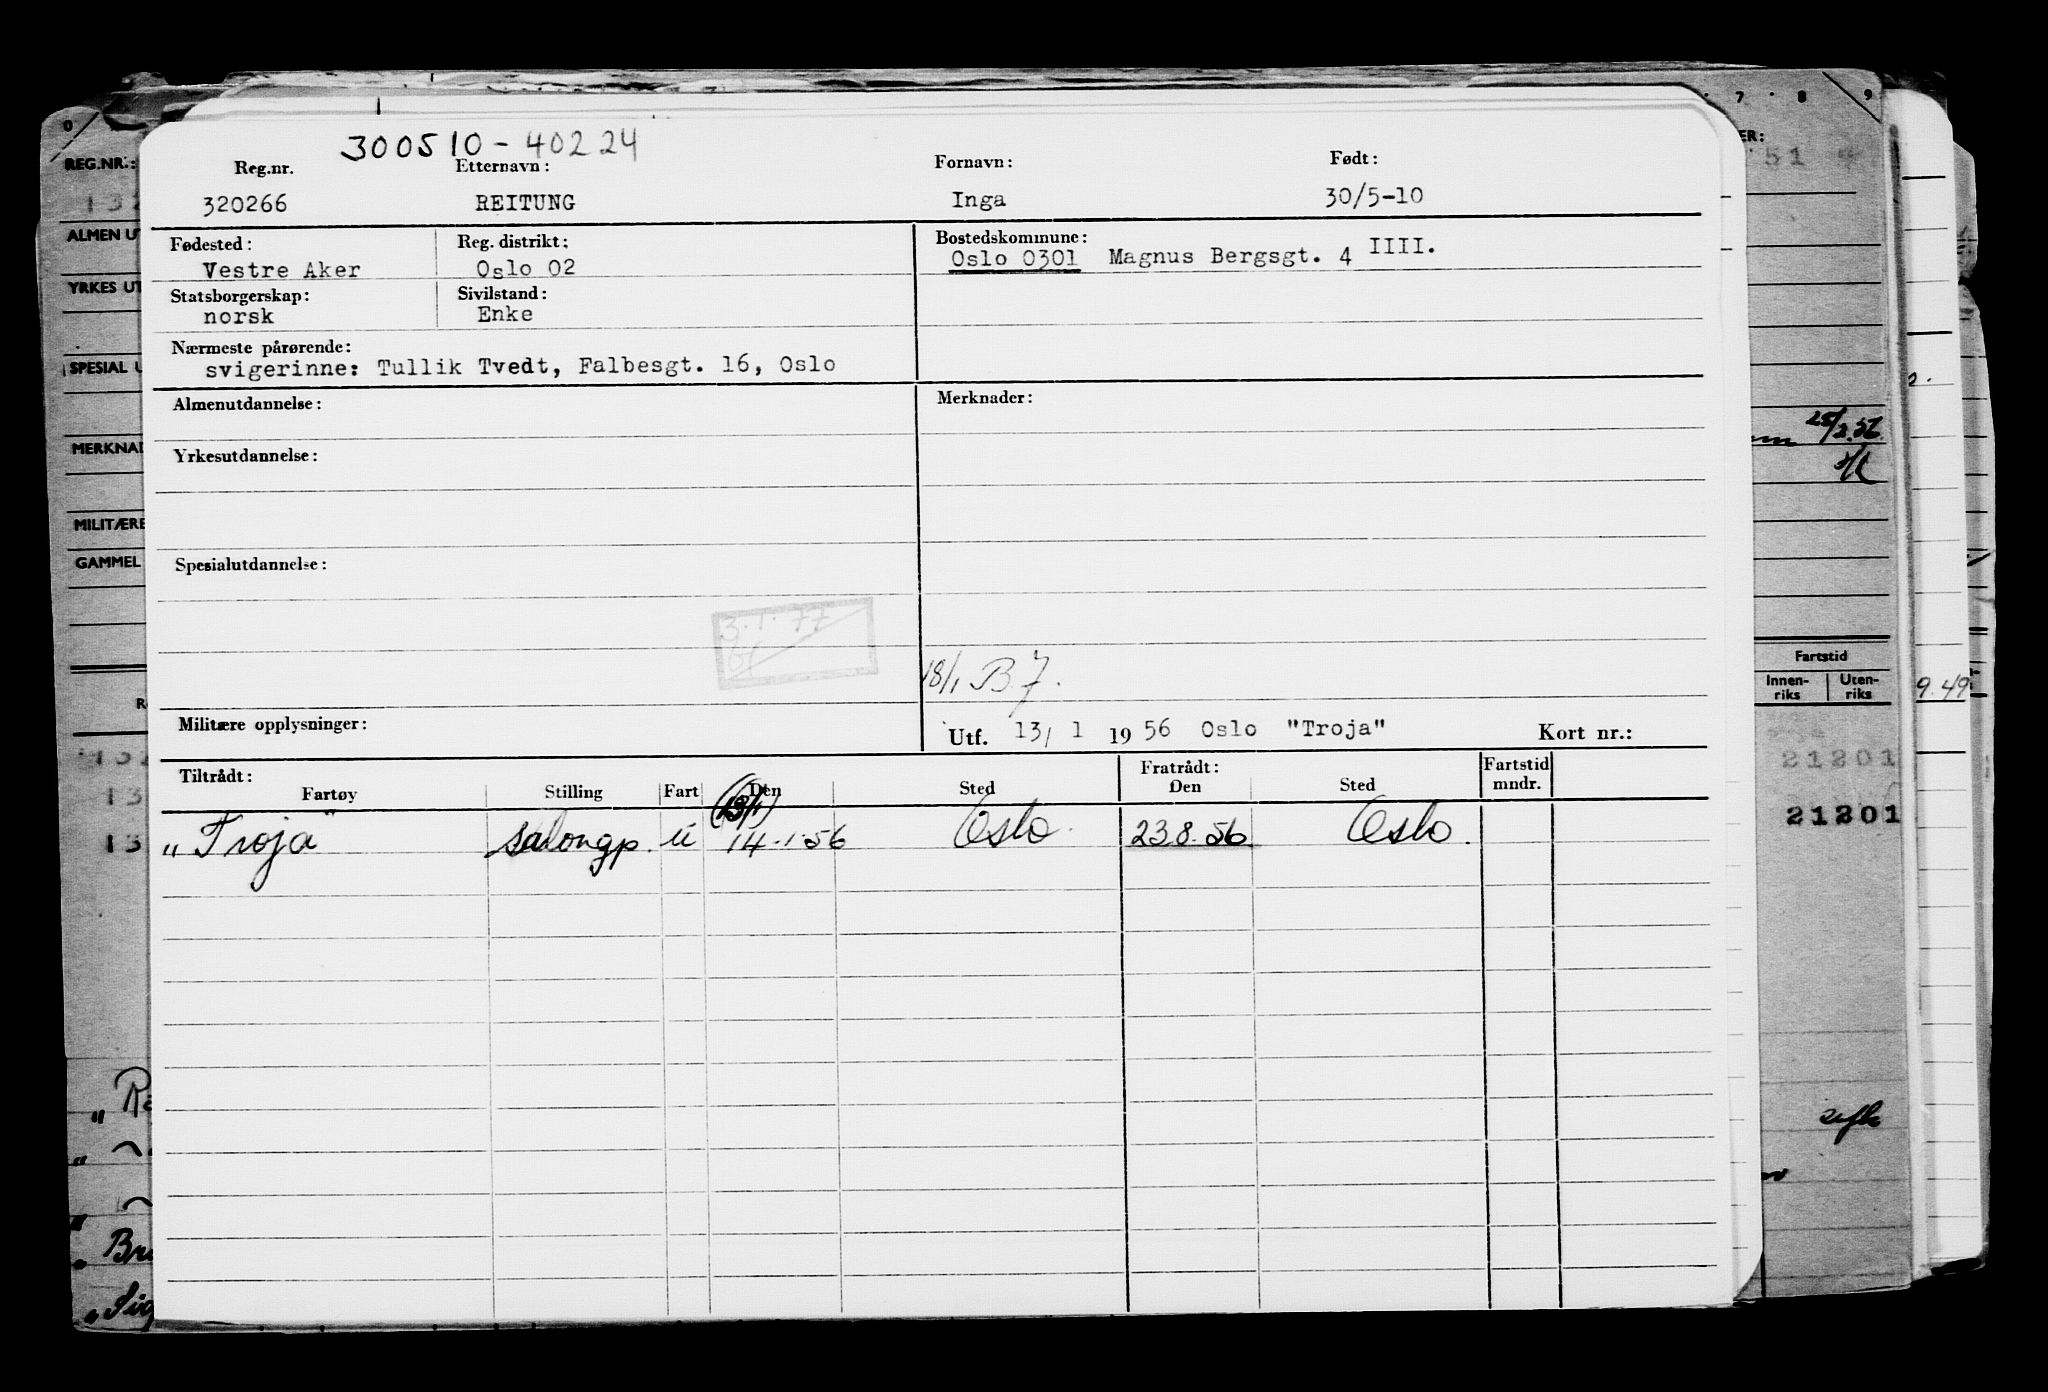 300510-40224
Reg.nr. Etternavn: Fornavn: Født:
320266 REITUNG Inga 30/5-10
Fødested: Reg. distrikt: Bostedskommune:
Vestre Aker Oslo 02 Oslo 0301 Magnus Bergsgt. 4 IIII.
Statsborgerskap: Sivilstand:
norsk Enke
Nærmeste pårørende:
svigerinne: Tullik Tvedt, Falbesgt. 16, Oslo
Almenutdannelse: Merknader:
Yrkesutdannelse:
Spesialutdannelse:
3.1.77
18/1 B.J.
Militære opplysninger: Utf. 13/ 1 1956 Oslo "Troja" Kort nr.:
Tiltrådt: Fratrådt: Fartstid
Fartøy Stilling Fart Den Sted Den Sted mndr.
(13/1)
"Troja" salongp. u 14.1.56 Oslo. 23.8.56 Oslo.
0
REG.NR.:
132
ALMEN UT
YRKES UT
SPESIAL U
MERKNAD
MILITÆRE
GAMMEL
7 8 9
ER:
51
25/2.56.
Fartstid
Innen- Uten-
riks riks
9.49
21201
21201
13
13